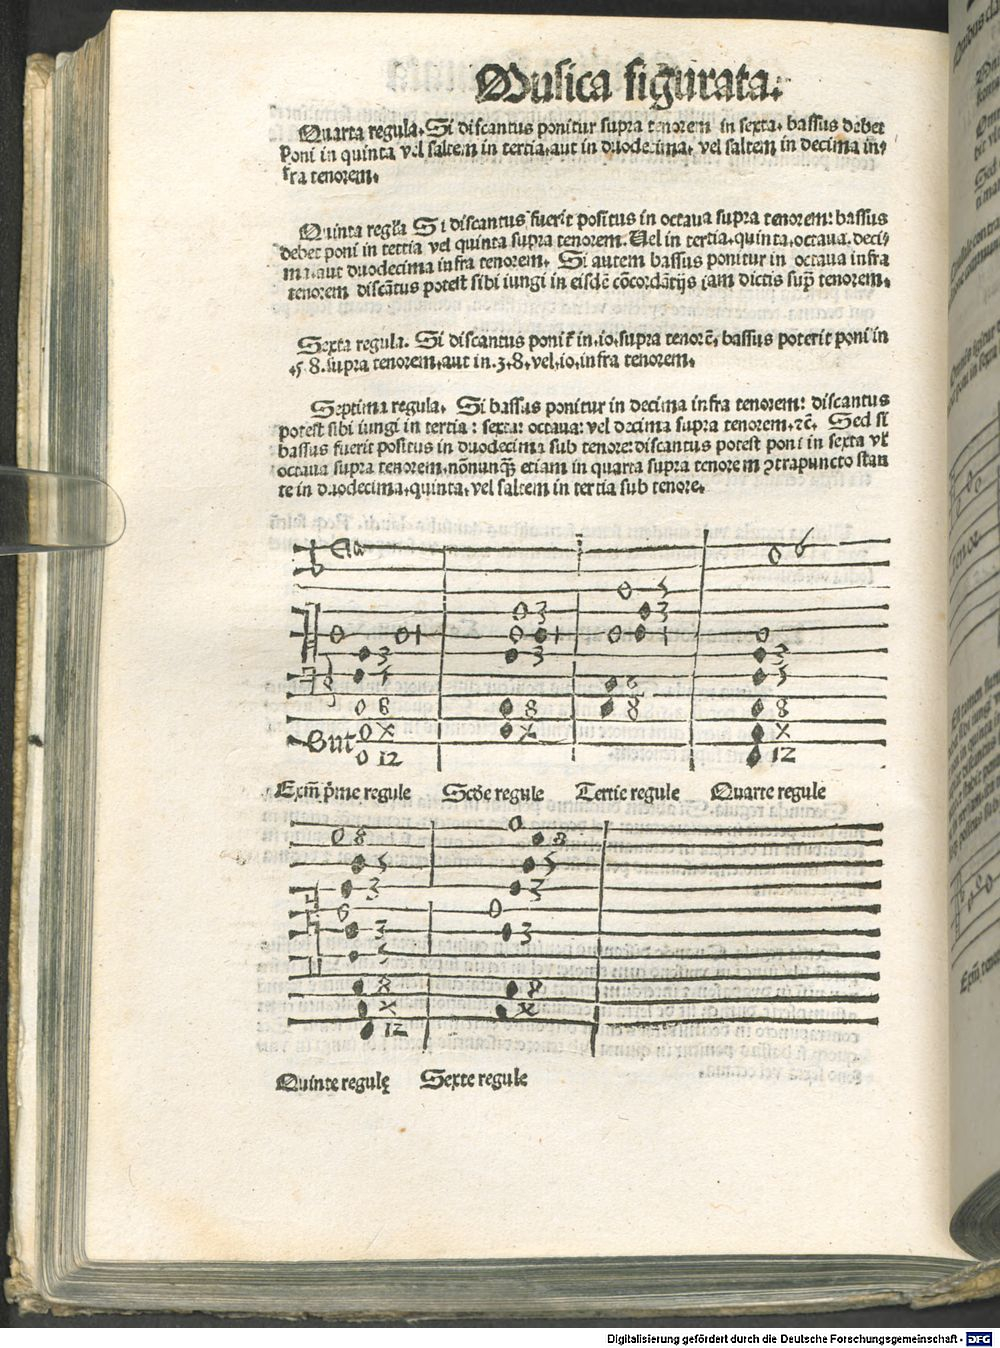 Musica figurata.
Quarta regula. Si discantus ponitur supra tenorem in sexta. bassus debet
poni in quinta vel saltem in tertia. aut in duodecima. vel saltem in decima in⸗
fra tenorem.
Quinta regła Si discantus fuerit positus in octaua supra tenorem: bassus
debet poni in tertia vel quinta supra tenorem. Uel in tertia. quinta. octaua. deci⸗
ma. aut duodecima infra tenorem. Si autem bassus ponitur in octaua infra
tenorem discātus potest sibi iungi in eisdē cōcordātijs iam dictis sup̄ tenorem.
Sexta regula. Si discantus ponit̄ in .io. supra tenorē. bassus poterit poni in
.5 8. supra tenorem. aut in .3. 8. vel .io. infra tenorem.
Septima regula. Si bassus ponitur in decima infra tenorem: discantus
potest sibi iungi in tertia: sexta: octaua: vel decima supra tenorem. ⁊c̄. Sed si
bassus fuerit positus in duodecima sub tenore: discantus potest poni in sexta vł
octaua supra tenorem. nōnunqȝ etiam in quarta supra tenorem ꝯtrapuncto stan
te in duodecima. quinta. vel saltem in tertia sub tenore.
Ela
6
5
3 3
3 3 3
5 6 5
8 8 8 8
Gut X X X
12 12
Exm̄ p̄me regule Scd̄e regule Tertie regule Quarte regule
8 8
5 5
3 3
6
3 3
5
8 8
X X
12
Quinte regulę Sexte regule
Digitalisierung gefördert durch die Deutsche Forschungsgemeinschaft - DFG